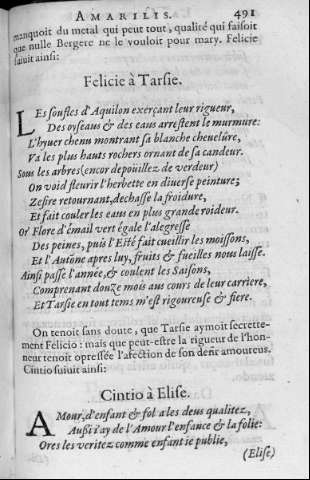 AMARILIS. 491
manquoit du metal qui peut tout, qualité qui faisoit
que nulle Bergere ne le vouloit pour mary. Felicie
suiuit ainsi:
Felicie à Tarsie.
LEs soufles d'Aquilon exerçant leur rigueur,
Des oyseaus & des eaus arrestent le murmure:
L'hyuer chenu montrant sa blanche cheuelure,
Va les plus hauts rochers ornant de sa candeur.
Sous les arbres (encor depoüillez de verdeur)
On void fleurir l'herbette en diuerse peinture;
Zefire retournant, dechasse la froidure,
Et fait couler les eaus en plus grande roideur.
Or Flore d'émail vert égale l'alegresse
Des peines, puis l'Esté fait cueillir les moissons,
Et l'Autõne apres luy, fruits & fueilles nous laisse.
Ainsi passe l'année, & coulent les Saisons,
Comprenant douze mois aus cours de leur carrière,
Et Tarsie en tout tems m'est rigoureuse & fiere.
On tenoit sans doute, que Tarsie aymoit secrette-
ment Felicio: mais que peut-estre la rigueur de l'hon-
neur tenoit opressée l'afection de son desir amoureus.
Cintio suiuit ainsi:
Cintio à Elise.
AMour, d'enfant & fol a les deus qualitez,
Außi i'ay de l'Amour l'enfance & la folie:
Ores les veritez comme enfant ie publie,
(Elise)